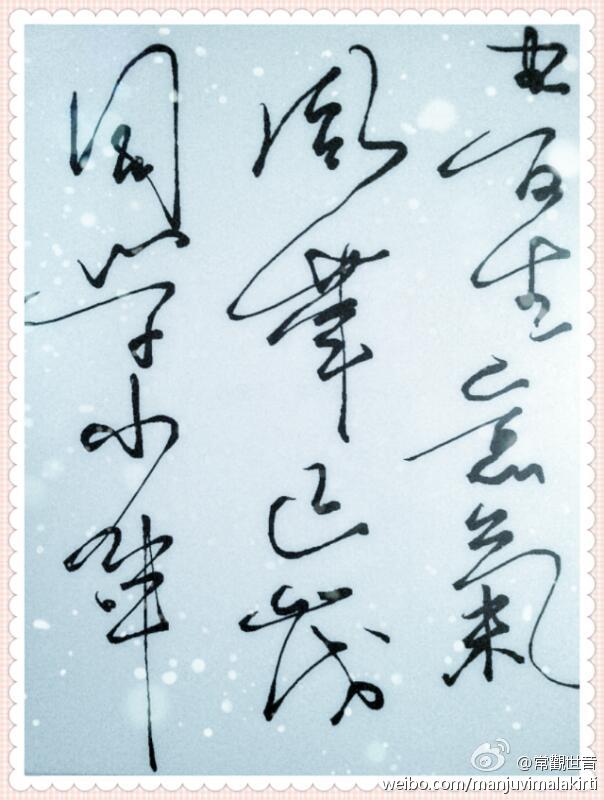 書生意氣
風華正茂
同學少年
@常觀世音
weibo.com/manjuvimalakirti